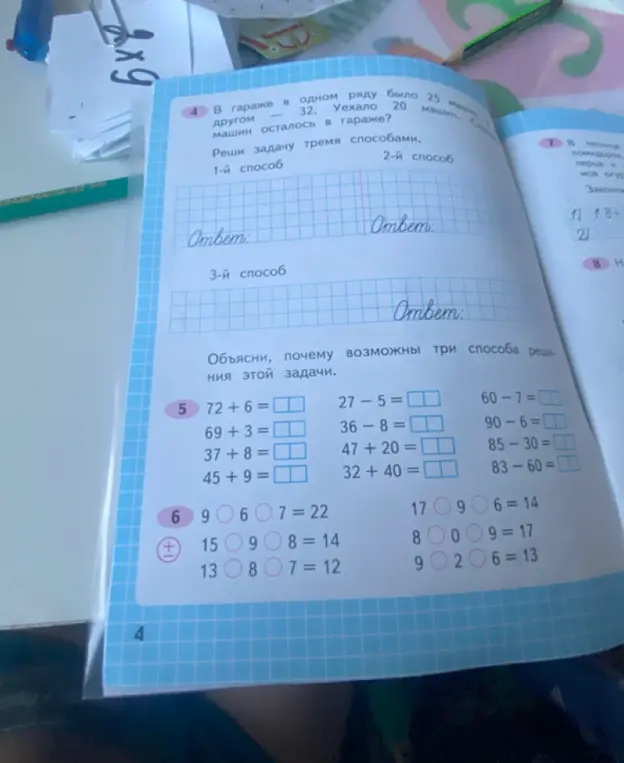 4 В гараже в одном ряду было 25
другом — 32. Уехало 20 машин.
машин осталось в гараже?
Реши задачу тремя способами.
1-й способ 2-й способ
Ответ: Ответ:
3-й способ
Ответ:
Объясни, почему возможны три способа
ния этой задачи.
5 72 + 6 = 27 − 5 = 60 − 7 =
69 + 3 = 36 − 8 = 90 − 6 =
37 + 8 = 47 + 20 = 85 − 30 =
45 + 9 = 32 + 40 = 83 − 60 =
6 9 6 7 = 22 17 9 6 = 14
± 15 9 8 = 14 8 0 9 = 17
13 8 7 = 12 9 2 6 = 13
4
7 В
1)
2)
8 Н